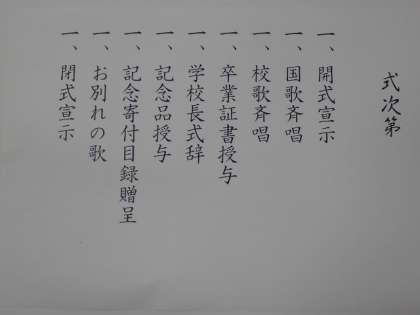 式次第
一、開式宣示
一、国歌斉唱
一、校歌斉唱
一、卒業証書授与
一、学校長式辞
一、記念品授与
一、記念寄付目録贈呈
一、お別れの歌
一、閉式宣示